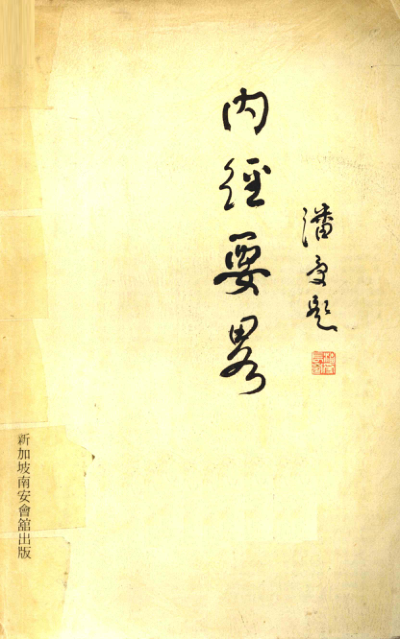 內經要畧
潘受題
新加坡南安會舘出版